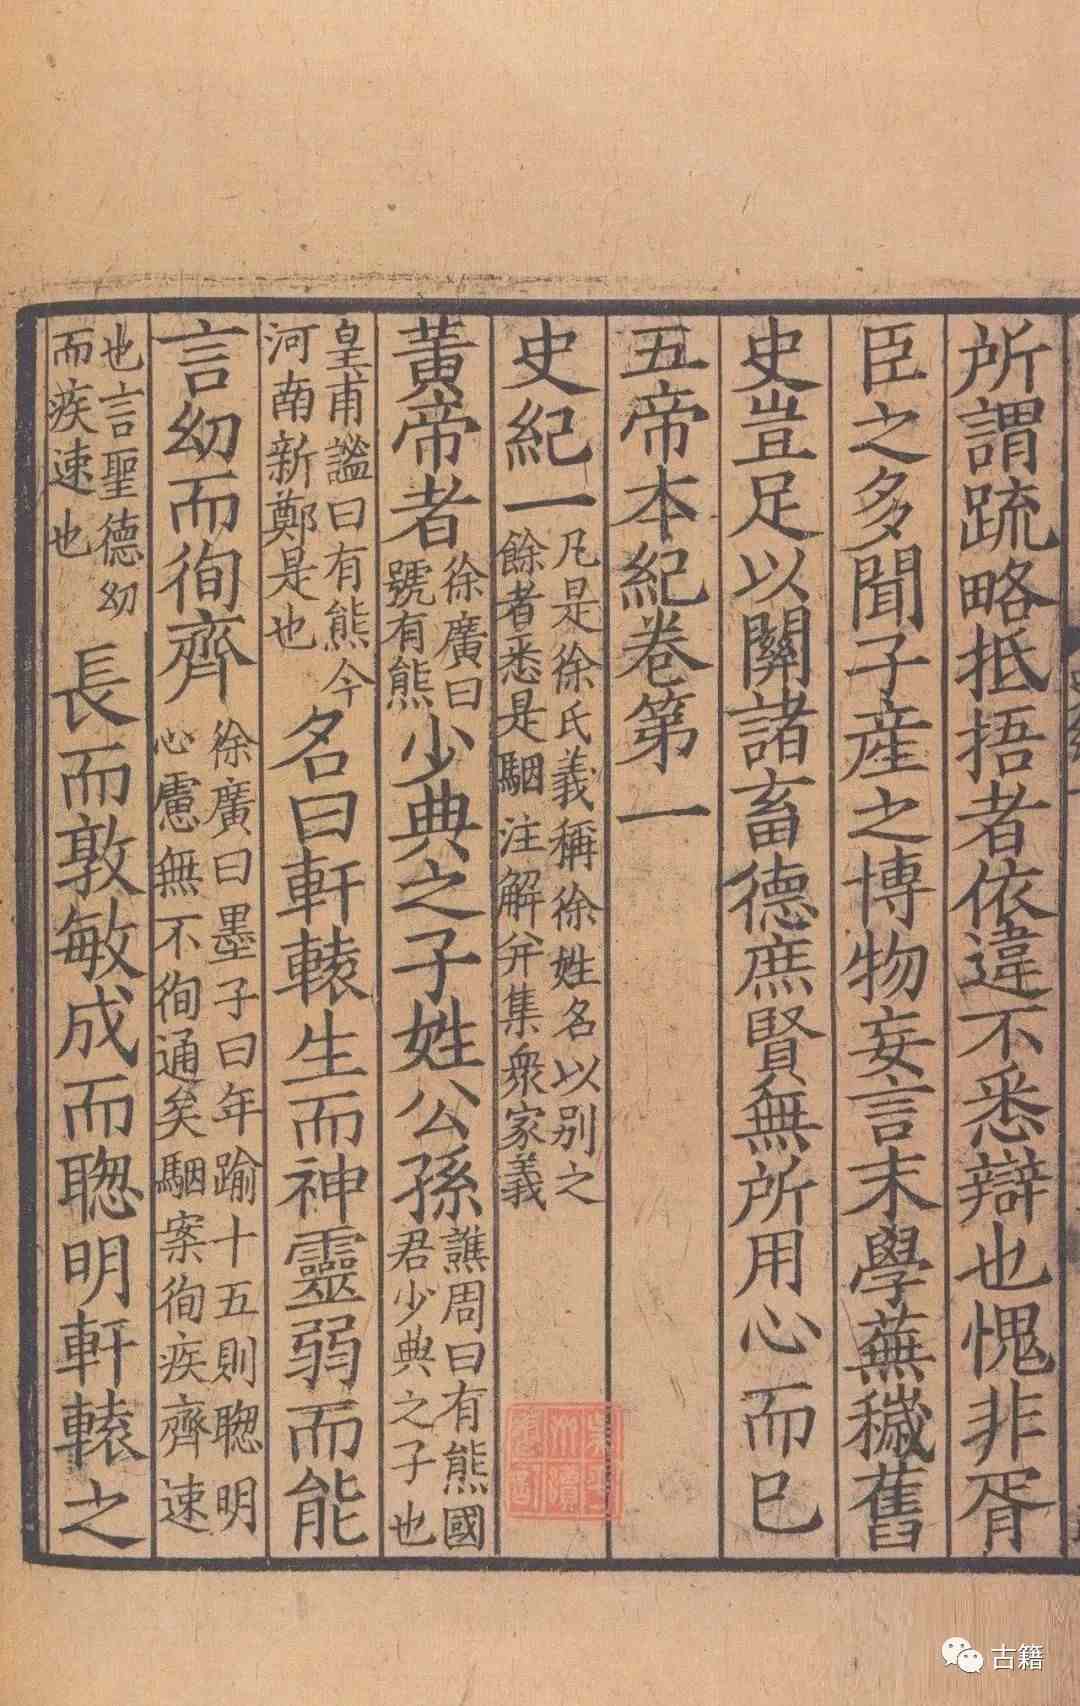 所謂疏略抵捂者依違不悉辯也愧非胥
臣之多聞子產之博物妄言末學蕪穢舊
史豈足以關諸畜德庶賢無所用心而已
五帝本紀卷第一
史紀一凡是徐氏義稱徐姓名以别之
餘者悉是駰注解并集衆家義
黃帝者徐廣曰
號有熊
少典之子姓公孫譙周曰有熊國
君少典之子也
皇甫謐曰有熊今
河南新鄭是也
名曰軒轅生而神靈弱而能
言幼而徇齊徐廣曰墨子曰年踰十五則聦明
心慮無不徇通矣駰案徇疾齊速
也言聖德幼
而疾速也
長而敦敏成而聦明軒轅之
古籍